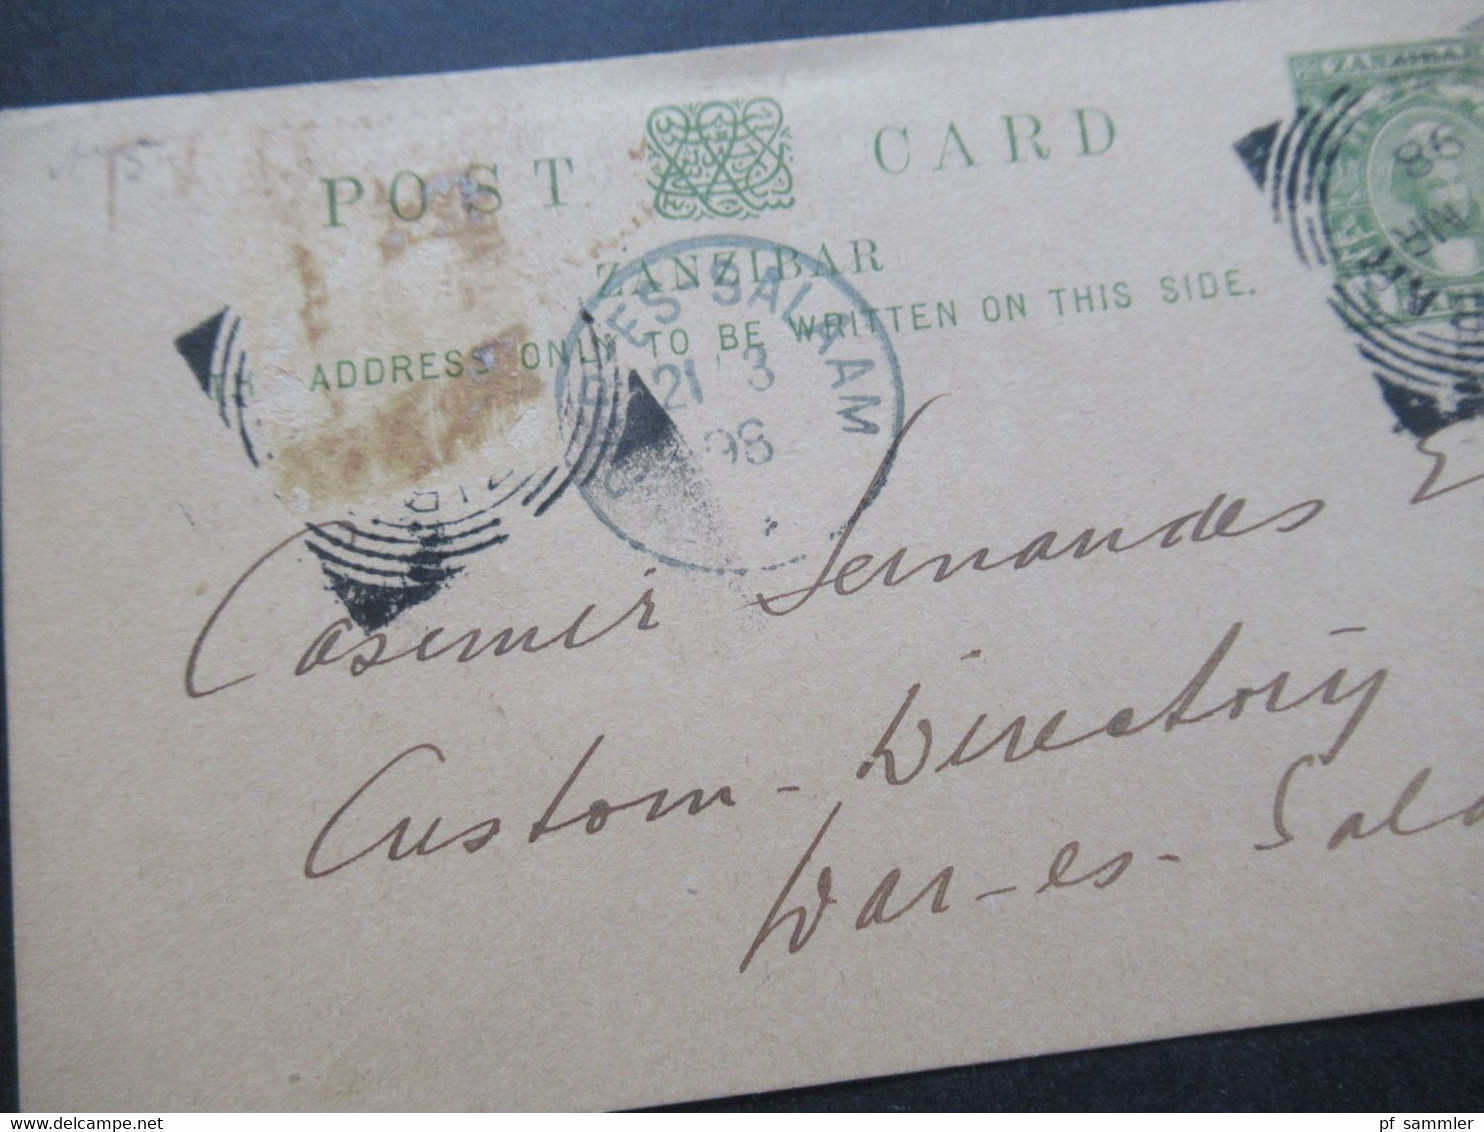 POST CARD
ZANZIBAR
ADDRESS ONLY TO BE WRITTEN ON THIS SIDE.
ZANZIBAR
98
MR
ES SALAAM
21 3
98
Casemir Fernandes E
Custom-Directory
Dar-es-Sala
www.delcampe.net
pf_sammler